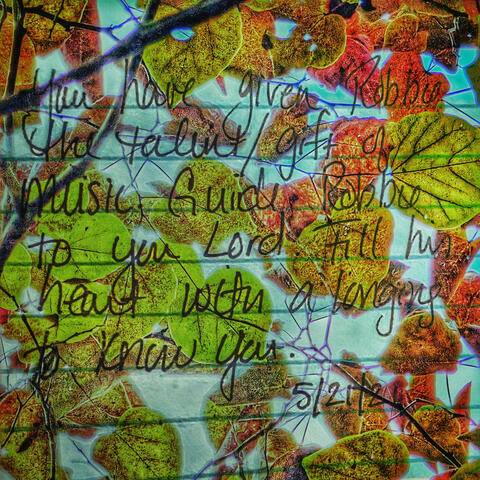 You have given Robbie
the talent/gift of
music. Guide Robbie
to you Lord Fill his
heart with a longing
to know you.
5/21/2